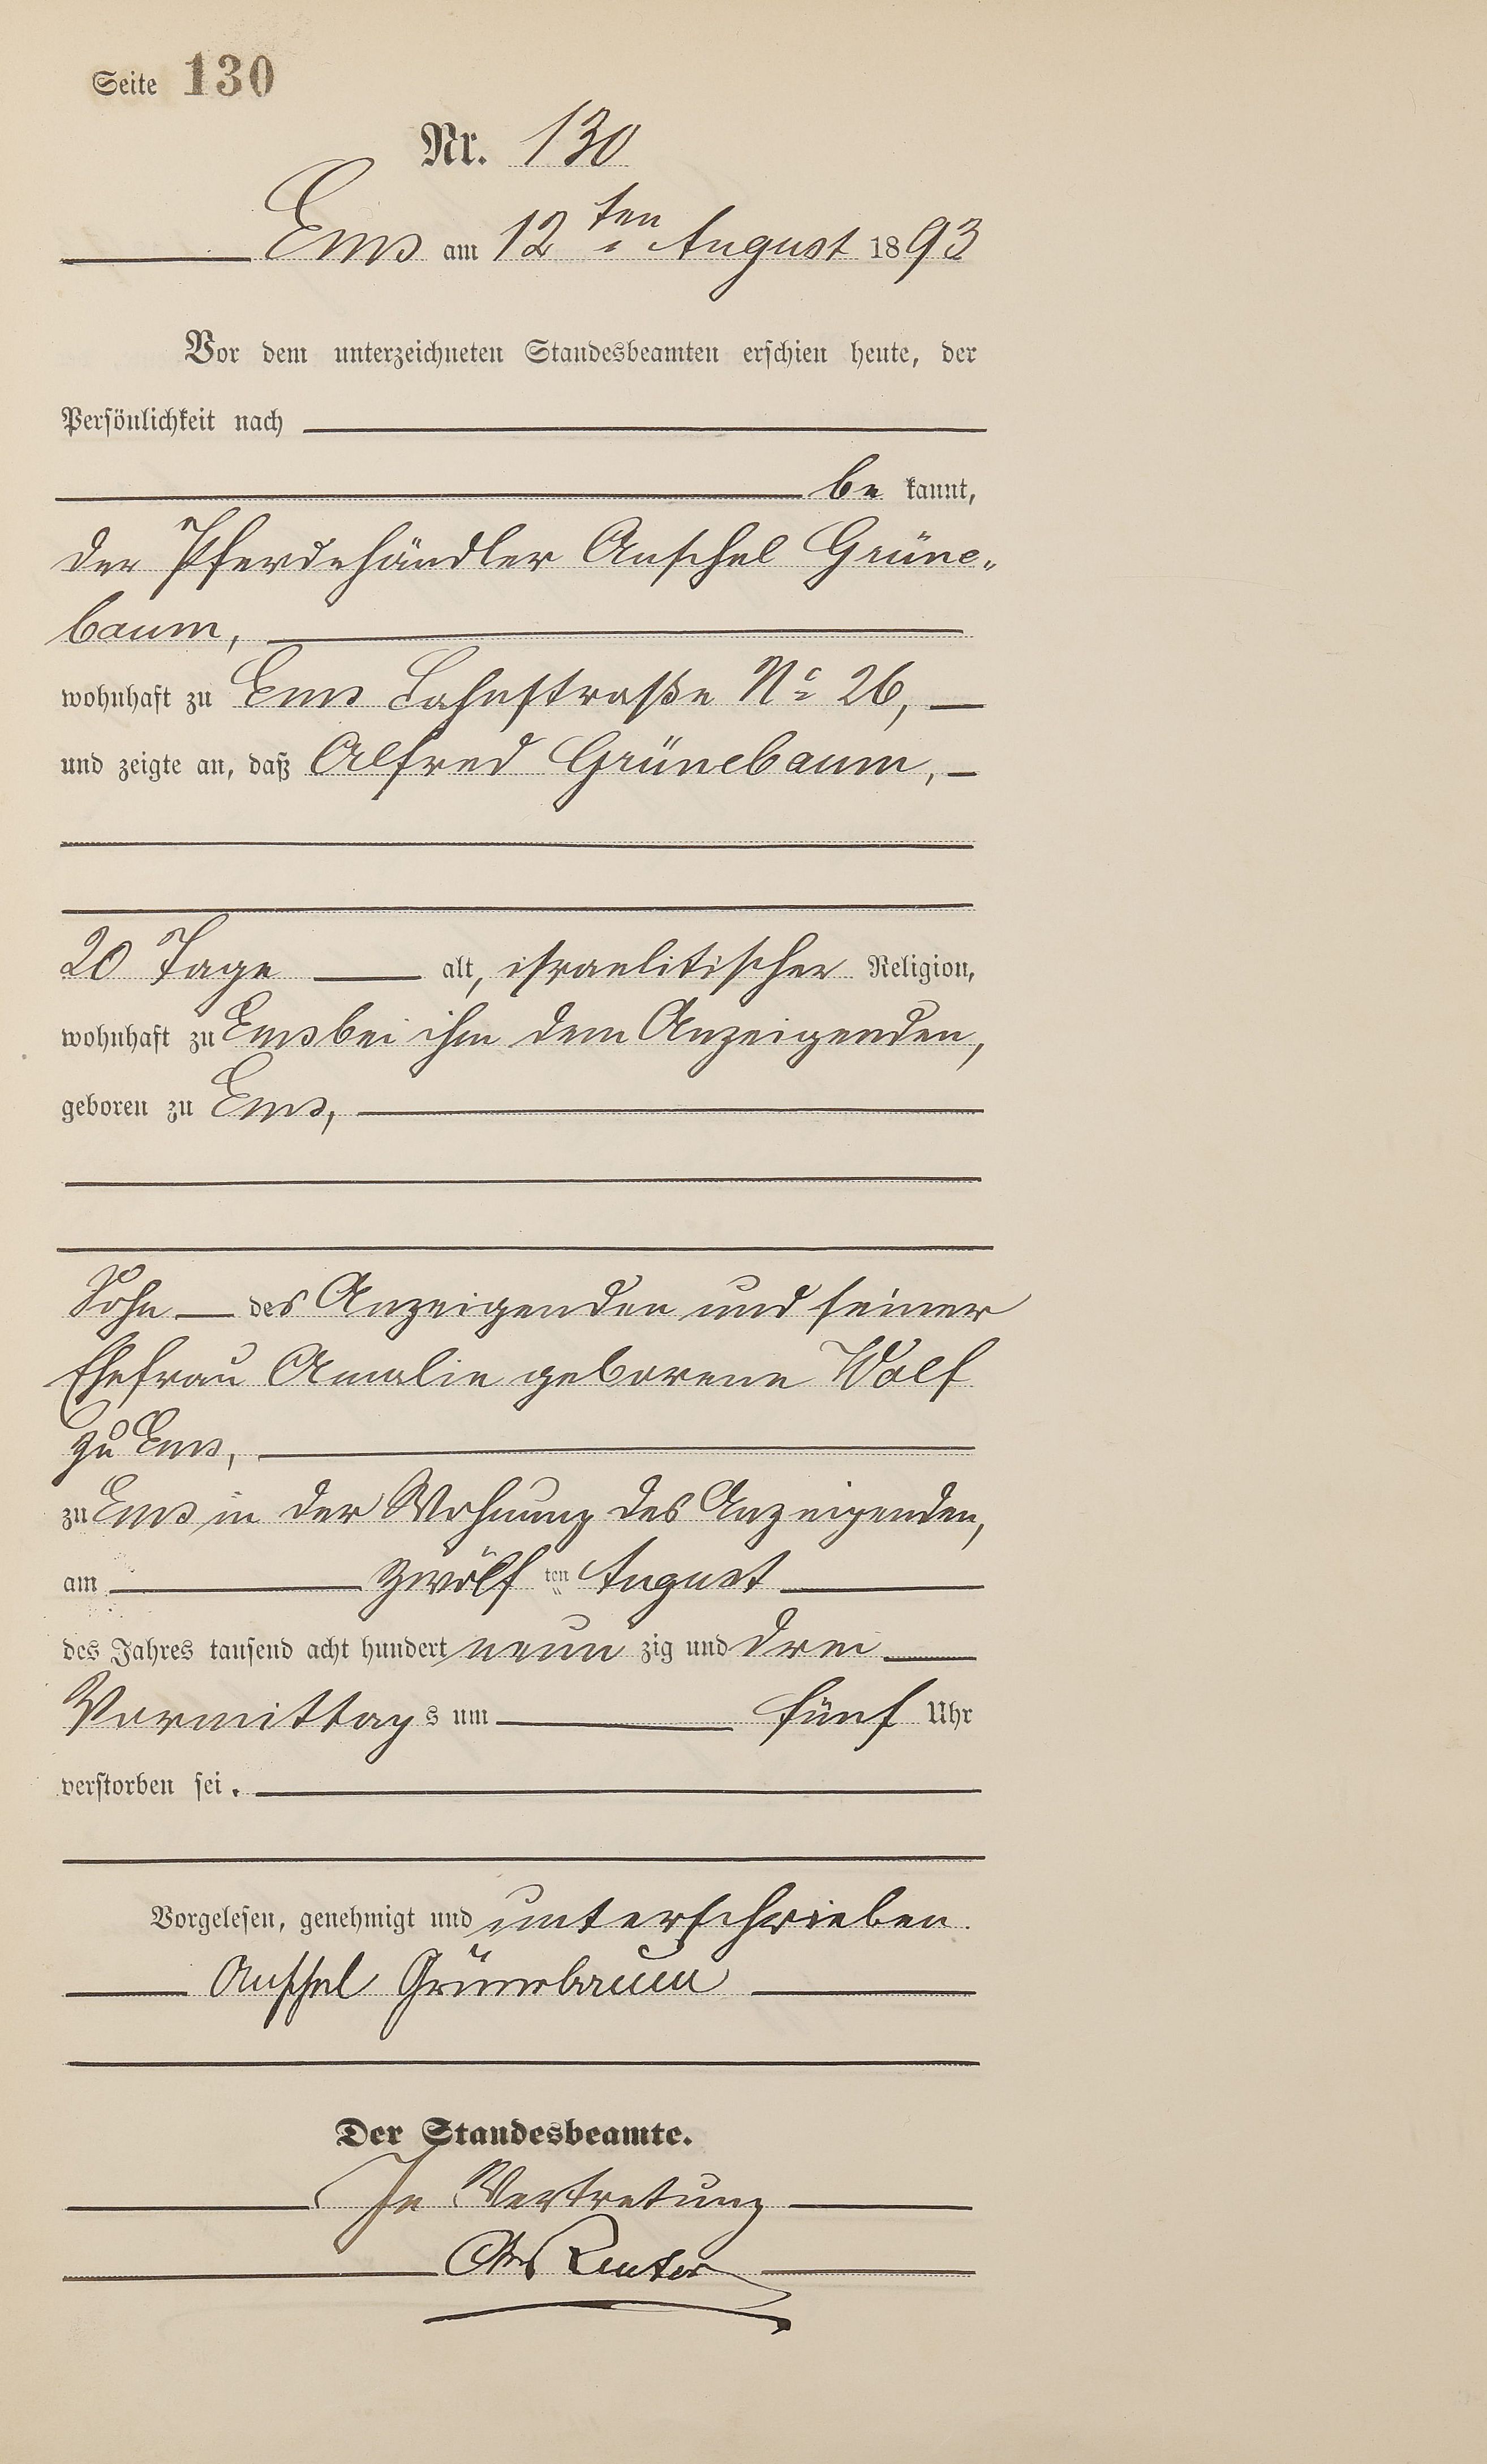 Seite 130
Nr. 130
Ems am 12ten August 1893
Vor dem unterzeichneten Standesbeamten erschien heute, der
Persönlichkeit nach
be kannt,
der Pferdehändler Anschel Grüne-
baum,
wohnhaft zu Ems Lahnstraße No 26,
und zeigte an, daß Alfred Grünebaum,
20 Tage alt, israelitischer Religion,
wohnhaft zu Ems bei ihm dem Anzeigenden,
geboren zu Ems,
Sohn des Anzeigenden und seiner
Ehefrau Amalie geborene Wolf
zu Ems,
zu Ems in der Wohnung des Anzeigenden,
am zwölf ten August
des Jahres tausend acht hundert neun zig und drei
Vormittags um fünf Uhr
verstorben sei.
Vorgelesen, genehmigt und unterschrieben.
Anschel Grünebaum
Der Standesbeamte.
In Vertretung
Reuter